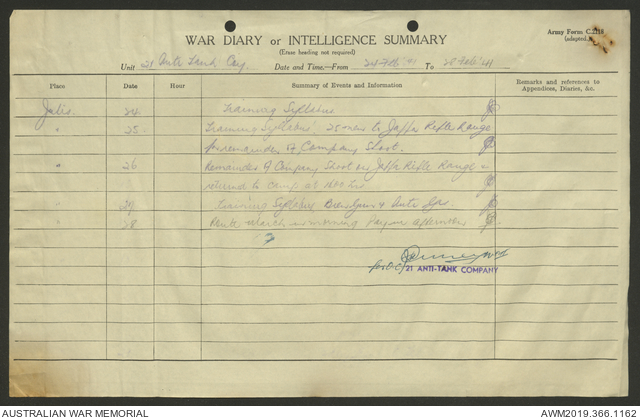 Army Form C.2118
(adapted.)
WAR DIARY or INTELLIGENCE SUMMARY
(Erase heading not required)
Unit 21 Anti Tank Coy. Date and Time.—From 24 Feb '41 To 28 Feb '41
Place Date Hour Summary of Events and Information Remarks and references to Appendices, Diaries, &c.
Julis 24 Training Syllabus
" 25 Training Syllabus, 25 men to Jaffa Rifle Range
for remainder of Company Shoot.
" 26 Remainder of Company Shoot on Jaffa Rifle Range
returned to camp at 1600 hrs
" 27 Training Syllabus Bren Guns & Anti Gas.
" 28 Route March in morning Pay in afternoon
for O.C.
21 ANTI-TANK COMPANY
AUSTRALIAN WAR MEMORIAL
AWM2019.366.1162